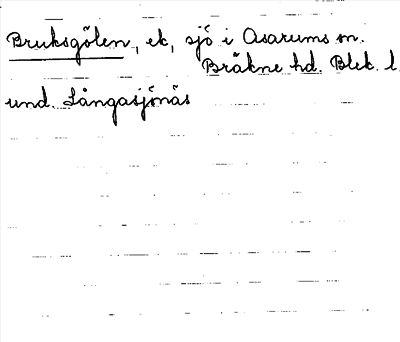 Bruksgölen, ek, sjö i Asarums sn.
Bräkne hd. Blek. l.
und. Långasjönäs